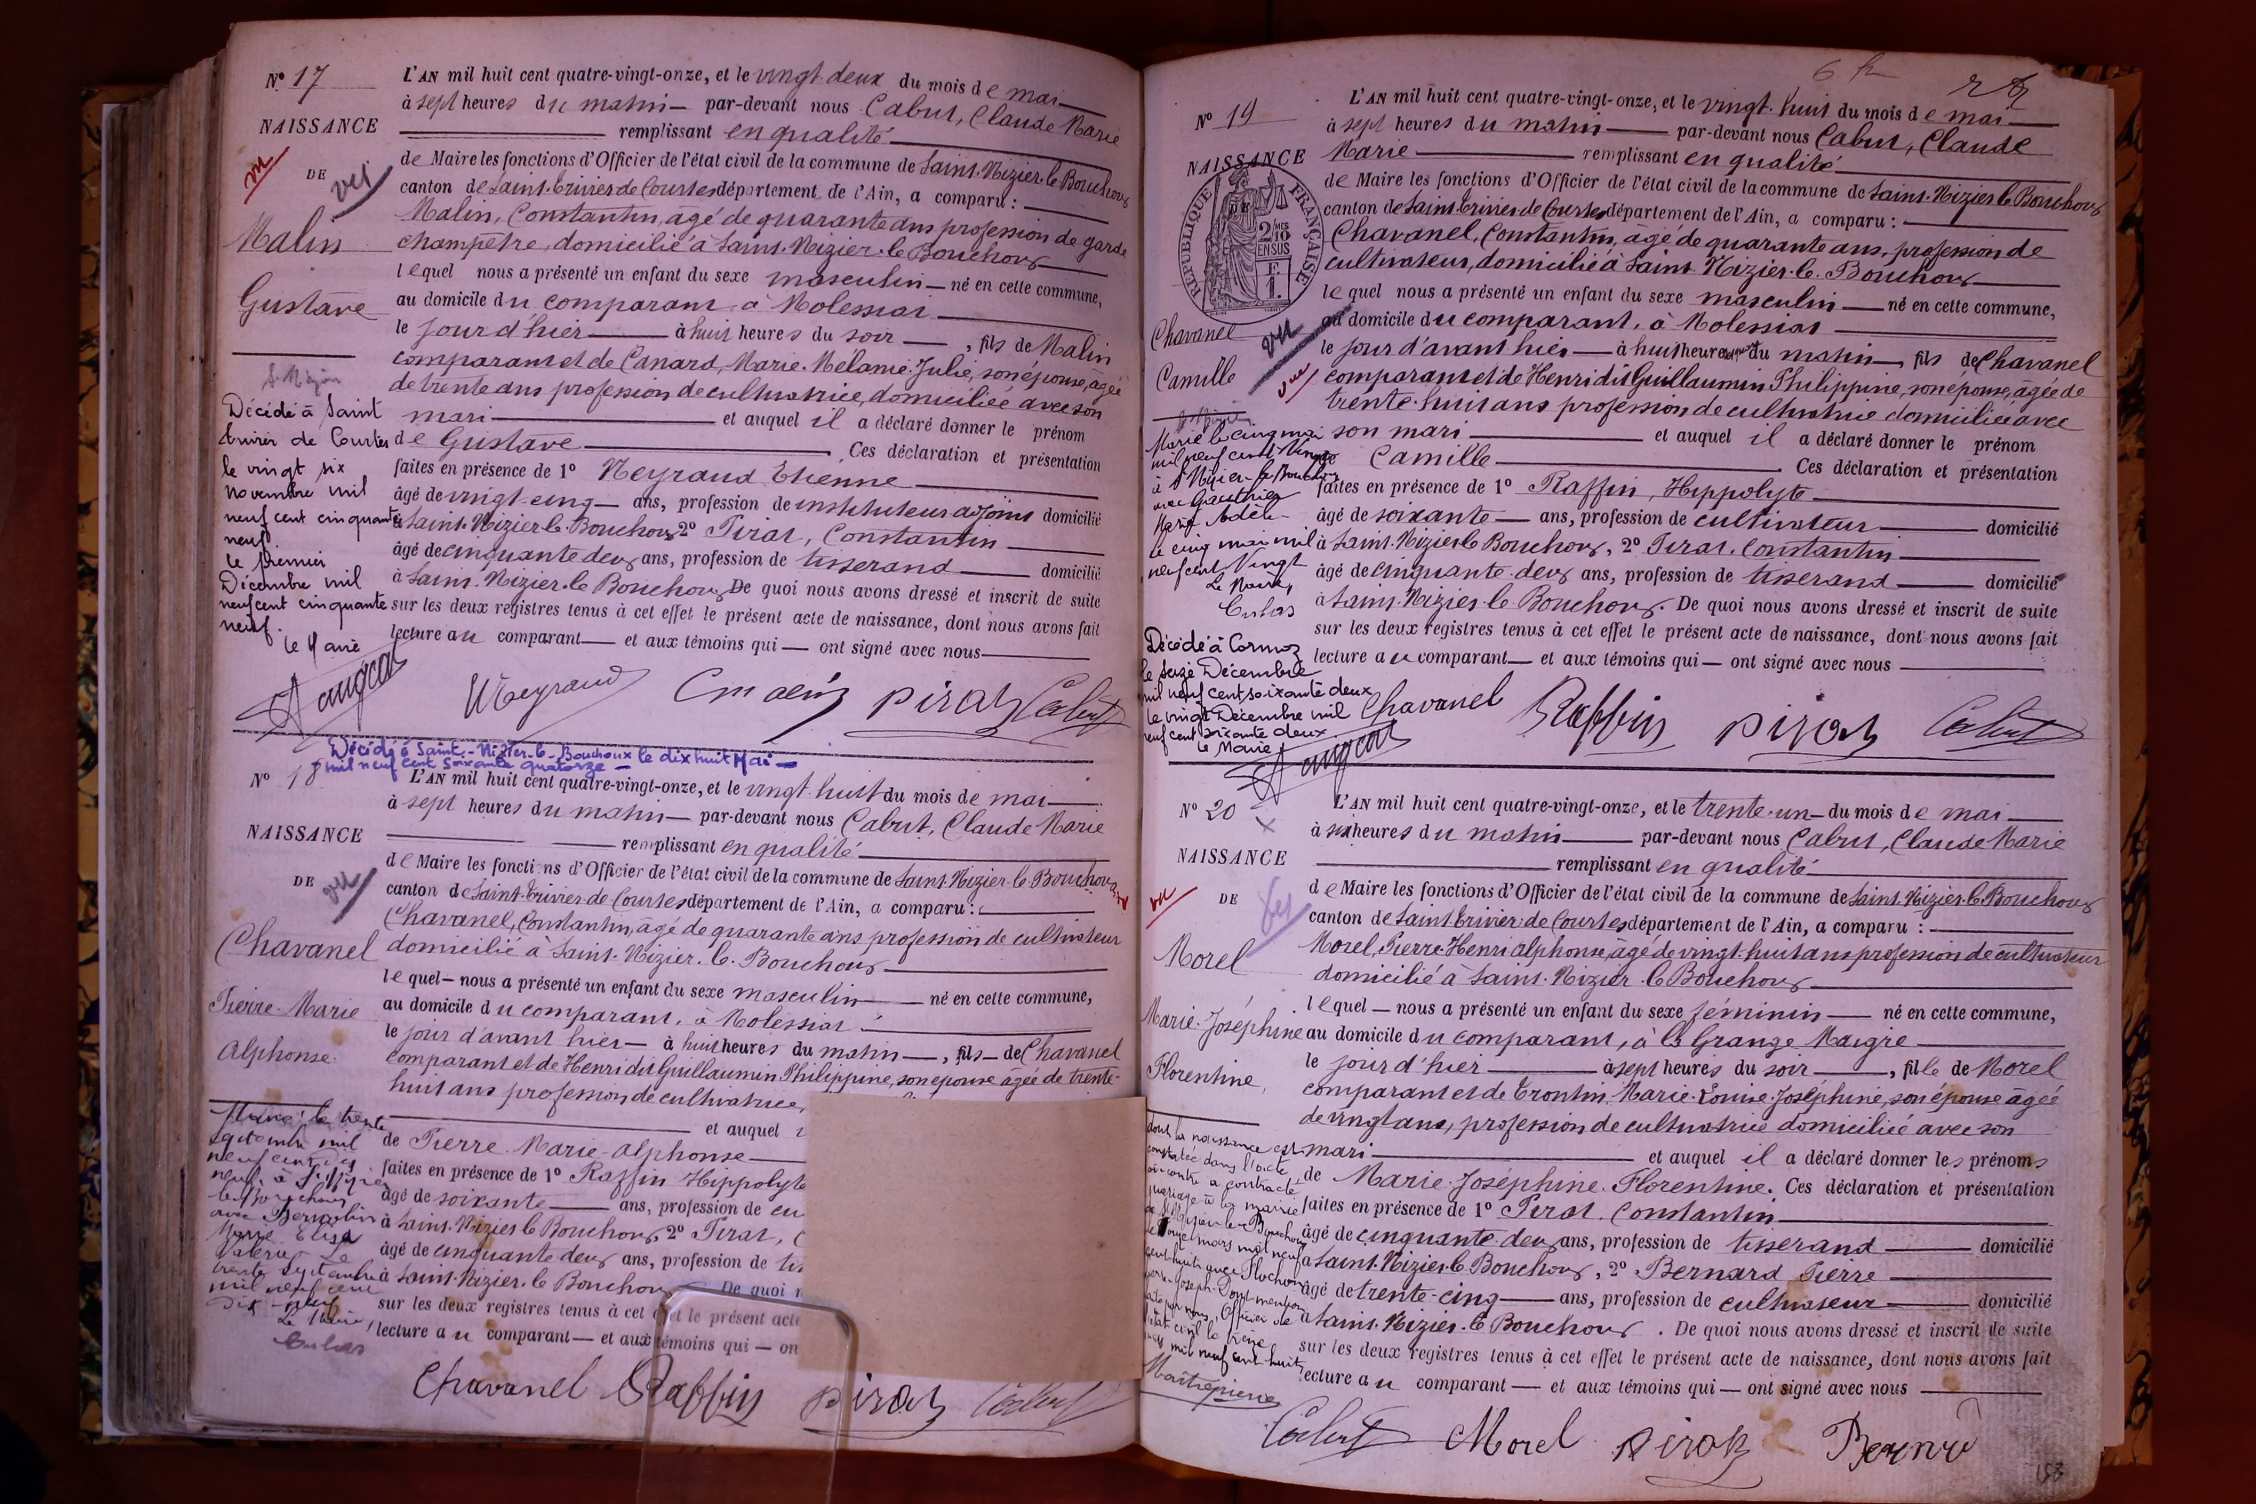 N° 17
NAISSANCE
DE
vu
vu
Malin
Gustave
St Nizier
Décédé à Saint
Trivier de Courtes
le vingt six
novembre mil
neuf cent cinquante
neuf.
le premier
Décembre mil
neuf cent cinquante
neuf.
le Maire
L'AN mil huit cent quatre-vingt-onze, et le vingt deux du mois de mai
à sept heures du matin par-devant nous Cabut, Claude Marie
remplissant en qualité
de Maire les fonctions d'Officier de l'état civil de la commune de Saint-Nizier-le-Bouchoux
canton de Saint-Trivier de Courtes département de l'Ain, a comparu :
Malin, Constantin, âgé de quarante ans profession de garde
champêtre, domicilié à Saint-Nizier-le-Bouchoux
lequel nous a présenté un enfant du sexe masculin né en cette commune,
au domicile du comparant à Molessiat
le jour d'hier à huit heures du soir, fils de Malin
comparant et de Canard, Marie Mélanie Julie, son épouse, âgée
de trente ans profession de cultivatrice, domiciliée avec son
mari et auquel il a déclaré donner le prénom
de Gustave. Ces déclaration et présentation
faites en présence de 1° Neyraud Etienne
âgé de vingt-cinq ans, profession de instituteur adjoint domicilié
à Saint-Nizier-le-Bouchoux 2° Pirat, Constantin
âgé de cinquante deux ans, profession de tisserand domicilié
à Saint-Nizier-le-Bouchoux De quoi nous avons dressé et inscrit de suite
sur les deux registres tenus à cet effet le présent acte de naissance, dont nous avons fait
lecture au comparant et aux témoins qui ont signé avec nous
Neyraud C malin pirat Cabut
Décédé à Saint-Nizier-le-Bouchoux le dix huit Mai
mil neuf cent soixante quatorze
N° 18
NAISSANCE
DE
vu
Chavanel
Pierre-Marie
Alphonse
Marié le trente
septembre mil
neuf cent dix
neuf à St Nizier
le Bouchoux
avec Bernolin
Marie Elisa
Valérie Le
trente septembre
mil neuf cent
dix-neuf
Le Maire,
L'AN mil huit cent quatre-vingt-onze, et le vingt-huit du mois de mai
à sept heures du matin par-devant nous Cabut, Claude Marie
remplissant en qualité
de Maire les fonctions d'Officier de l'état civil de la commune de Saint-Nizier-le-Bouchoux
canton de Saint-Trivier-de Courtes département de l'Ain, a comparu :
Chavanel, Constantin, âgé de quarante ans profession de cultivateur
domicilié à Saint-Nizier-le-Bouchoux
lequel nous a présenté un enfant du sexe masculin né en cette commune,
au domicile du comparant, à Molessiat
le jour d'avant hier à huit heures du matin, fils de Chavanel
comparant et de Henri dit Guillaumin Philippine, son épouse âgée de trente-
huit ans profession de cultivatrice,
et auquel
de Pierre Marie Alphonse
faites en présence de 1° Raffin Hippolyte
âgé de soixante ans, profession de cu
à Saint-Nizier le Bouchoux, 2° Pirat, C
âgé de cinquante deux ans, profession de tis
à Saint-Nizier-le Bouchoux De quoi n
sur les deux registres tenus à cet effet le présent acte
lecture au comparant et aux témoins qui on
Chavanel Raffin pirat Cabut
N° 19
NAISSANCE
DE
RÉPUBLIQUE FRANÇAISE
2/10MES
EN SUS
F.
1.
Chavanel
Camille
vu
vu
St Nizier
Marié le cinq mai
mil neuf cent Vingt
à St Nizier-le-Bouchoux
avec Gauthier
Marie Adèle
Le cinq mai mil
neuf cent Vingt
Le Maire,
Décédé à Cormoz
le seize Décembre
mil neuf cent soixante deux
le vingt Décembre mil
neuf cent soixante deux
le Maire
L'AN mil huit cent quatre-vingt-onze, et le vingt-huit du mois de mai
à sept heures du matin par-devant nous Cabut, Claude
Marie remplissant en qualité
de Maire les fonctions d'Officier de l'état civil de la commune de Saint-Nizier-le-Bouchoux
canton de Saint-Trivier de Courtes département de l'Ain, a comparu :
Chavanel, Constantin, âgé de quarante ans, profession de
cultivateur, domicilié à Saint-Nizier-le-Bouchoux
lequel nous a présenté un enfant du sexe masculin né en cette commune,
au domicile du comparant, à Molessiat
le jour d'avant hier à huit heures du matin, fils de Chavanel
comparant et de Henri dit Guillaumin Philippine, son épouse, âgée de
trente-huit ans profession de cultivatrice domiciliée avec
son mari et auquel il a déclaré donner le prénom
Camille. Ces déclaration et présentation
faites en présence de 1° Raffin, Hippolyte
âgé de soixante ans, profession de cultivateur domicilié
à Saint-Nizier le Bouchoux, 2° Pirat, Constantin
âgé de cinquante-deux ans, profession de tisserand domicilié
à Saint-Nizier-le-Bouchoux. De quoi nous avons dressé et inscrit de suite
sur les deux registres tenus à cet effet le présent acte de naissance, dont nous avons fait
lecture au comparant et aux témoins qui ont signé avec nous
Chavanel Raffin pirat Cabut
N° 20
NAISSANCE
DE
vu
vu
Morel
Marie-Joséphine
Florentine
dont la naissance est
constatée dans l'acte
ci-contre a contracté
mariage à la mairie
de St Nizier le Bouchoux
le douze mars mil neuf
cent huit avec Flochon
Joseph. Dont mention
faite par nous, Officier de
l'état civil le treize
mars mil neuf cent huit
L'AN mil huit cent quatre-vingt-onze, et le trente-un du mois de mai
à six heures du matin par-devant nous Cabut, Claude Marie
remplissant en qualité
de Maire les fonctions d'Officier de l'état civil de la commune de Saint-Nizier-le-Bouchoux
canton de Saint Trivier-de Courtes département de l'Ain, a comparu :
Morel, Pierre-Henri Alphonse, âgé de vingt-huit ans profession de cultivateur
domicilié à Saint-Nizier-le Bouchoux
lequel nous a présenté un enfant du sexe féminin né en cette commune,
au domicile du comparant, à la Grange Maigre
le jour d'hier à sept heures du soir, fille de Morel
comparant et de Trontin, Marie-Louise-Joséphine, son épouse âgée
de vingt ans, profession de cultivatrice domiciliée avec son
mari et auquel il a déclaré donner les prénoms
de Marie Joséphine Florentine. Ces déclaration et présentation
faites en présence de 1° Pirat, Constantin
âgé de cinquante-deux ans, profession de tisserand domicilié
à Saint-Nizier-le-Bouchoux, 2° Bernard Pierre
âgé de trente-cinq ans, profession de cultivateur domicilié
à Saint-Nizier-le Bouchoux. De quoi nous avons dressé et inscrit de suite
sur les deux registres tenus à cet effet le présent acte de naissance, dont nous avons fait
lecture au comparant et aux témoins qui ont signé avec nous
Cabut Morel pirat Bernard